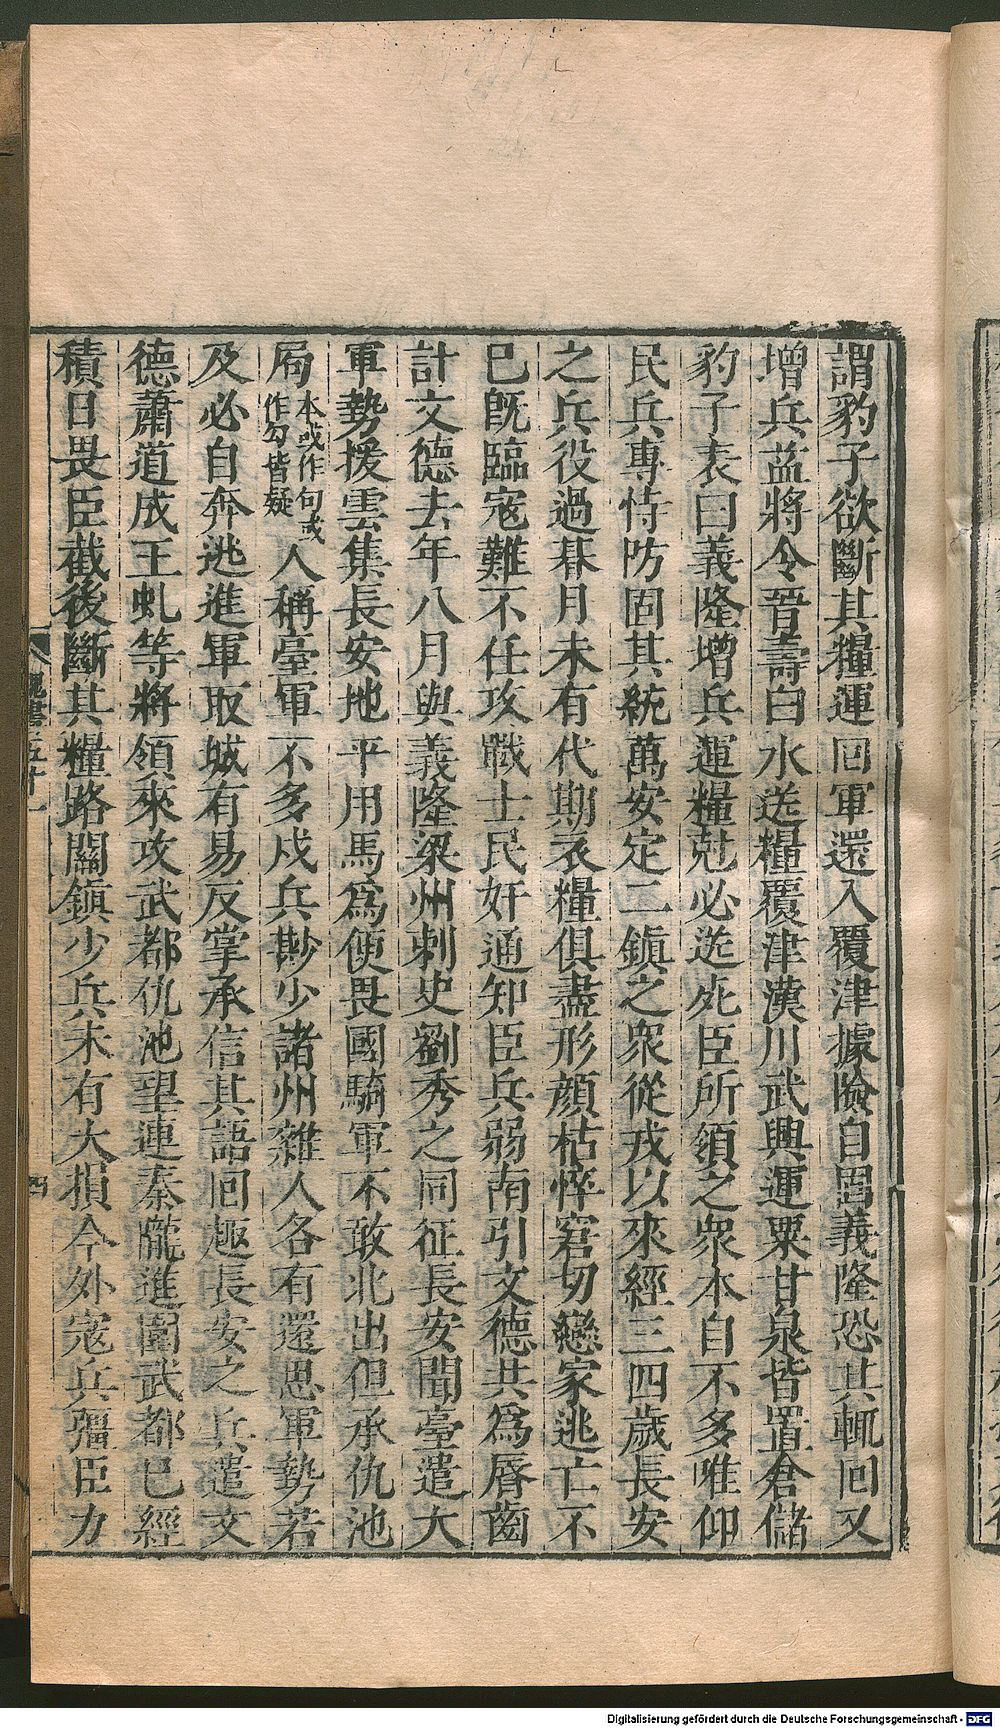 謂豹子欲斷其糧運回軍還入覆津據險自固義隆恐其輒回又
增兵益將令晉壽白水送糧覆津漢川武興運粟甘泉皆置倉儲
豹子表曰義隆增兵運糧尅必送死臣所領之衆本自不多唯仰
民兵專恃防固其統萬安定二鎮之衆從戎以來經三四歲長安
之兵役過朞月未有代期衣糧俱盡形顔枯悴窘切戀家逃亡不
已旣臨寇難不任攻戰士民奸通知臣兵弱南引文德共爲脣齒
計文德去年八月與義隆梁州刺史劉秀之同征長安聞臺遣大
軍勢援雲集長安地平用馬爲便畏國騎軍不敢北出但承仇池
局本或作句或作勾皆疑人稱臺軍不多戍兵尠少諸州雜人各有還思軍勢若
及必自奔逃進軍取城有易反掌承信其語回趣長安之兵遣文
德蕭道成王虬等將領來攻武都仇池望連秦隴進圍武都已經
積日畏臣截後斷其糧路關鎮少兵未有大損今外寇兵彊臣力
魏書五十一
四
Digitalisierung gefördert durch die Deutsche Forschungsgemeinschaft - DFG